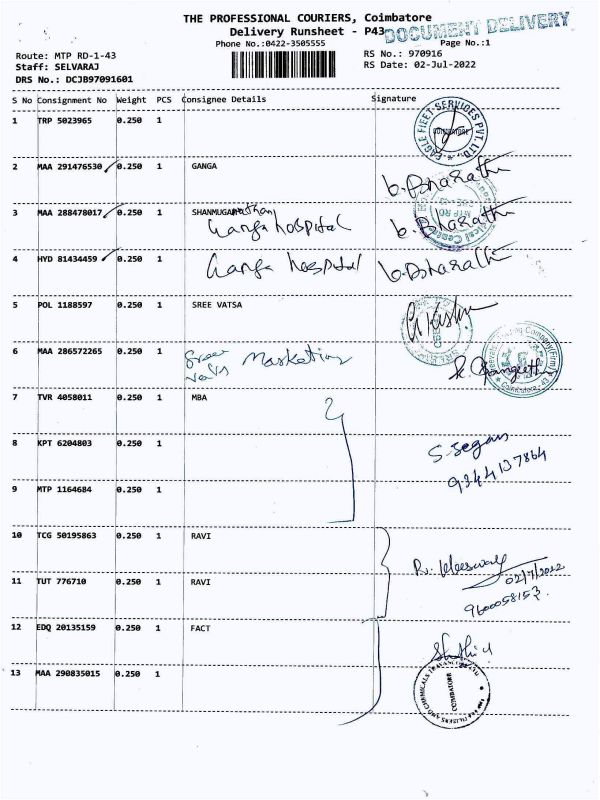 THE PROFESSIONAL COURIERS, Coimbatore
Delivery Runsheet - P43
DOCUMENT DELIVERY
Phone No.:0422-3505555
Page No.:1
Route: MTP RD-1-43
RS No.: 970916
Staff: SELVARAJ
RS Date: 02-Jul-2022
DRS No.: DCJB97091601
S No Consignment No Weight PCS Consignee Details Signature
1 TRP 5023965 0.250 1
EAGLE FLEET SERVICES PVT. LTD.
COIMBATORE
2 MAA 291476530 0.250 1 GANGA
b. Bharathi
3 MAA 288478017 0.250 1 SHANMUGANathan
Ganga hospital b. Bharathi
MTP RD
4 HYD 81434459 0.250 1 Ganga hospital b. Bharathi
5 POL 1188597 0.250 1 SREE VATSA
6 MAA 286572265 0.250 1 Sree Vatsa Marketing
K. Sangeetha
7 TVR 4058011 0.250 1 MBA
8 KPT 6204803 0.250 1
S. Segan
9344137864
9 MTP 1164684 0.250 1
10 TCG 50195863 0.250 1 RAVI
02/7/2022
11 TUT 776710 0.250 1 RAVI
9600058153.
12 EDQ 20135159 0.250 1 FACT
13 MAA 290835015 0.250 1
COIMBATORE